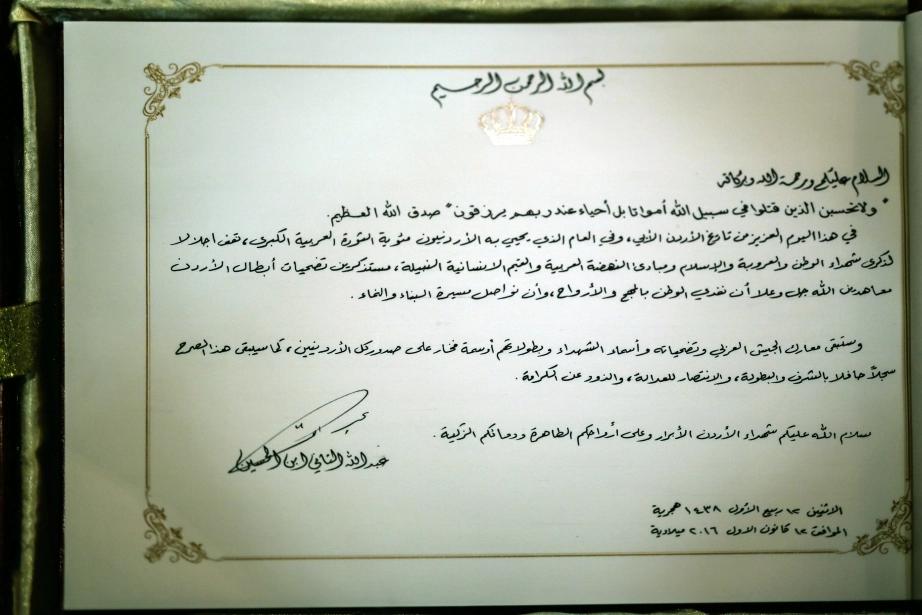 بسم الله الرحمن الرحيم
السلام عليكم ورحمة الله وبركاته
" ولا تحسبن الذين قتلوا في سبيل الله أمواتا بل أحياء عند ربهم يرزقون " صدق الله العظيم.
في هذا اليوم العزيز من تاريخ الأردن الأبي، وفي العام الذي يحيي به الأردنيون مئوية الثورة العربية الكبرى، نقف اجلالا
لذكرى شهداء الوطن والعروبة والإسلام ومبادئ النهضة العربية والقيم الإنسانية النبيلة، مستذكرين تضحيات أبطال الأردن
معاهدين الله جل وعلا أن نفدي الوطن بالمهج والأرواح، وأن نواصل مسيرة البناء والنماء .
وستبقى معارك الجيش العربي وتضحياته وأسماء الشهداء وبطولاتهم أوسمة فخار على صدور كل الأردنيين، كما سيبقى هذا الصرح
سجلاً حافلا بالشرف والبطولة، والانتصار للعدالة، والذود عن الكرامة.
سلام الله عليكم شهداء الأردن الأبرار وعلى أرواحكم الطاهرة ودمائكم الزكية.
عبدالله الثاني ابن الحسين
الاثنين ١٢ ربيع الأول ١٤٣٨ هجرية
الموافق ١٢ كانون الاول ٢٠١٦ ميلادية